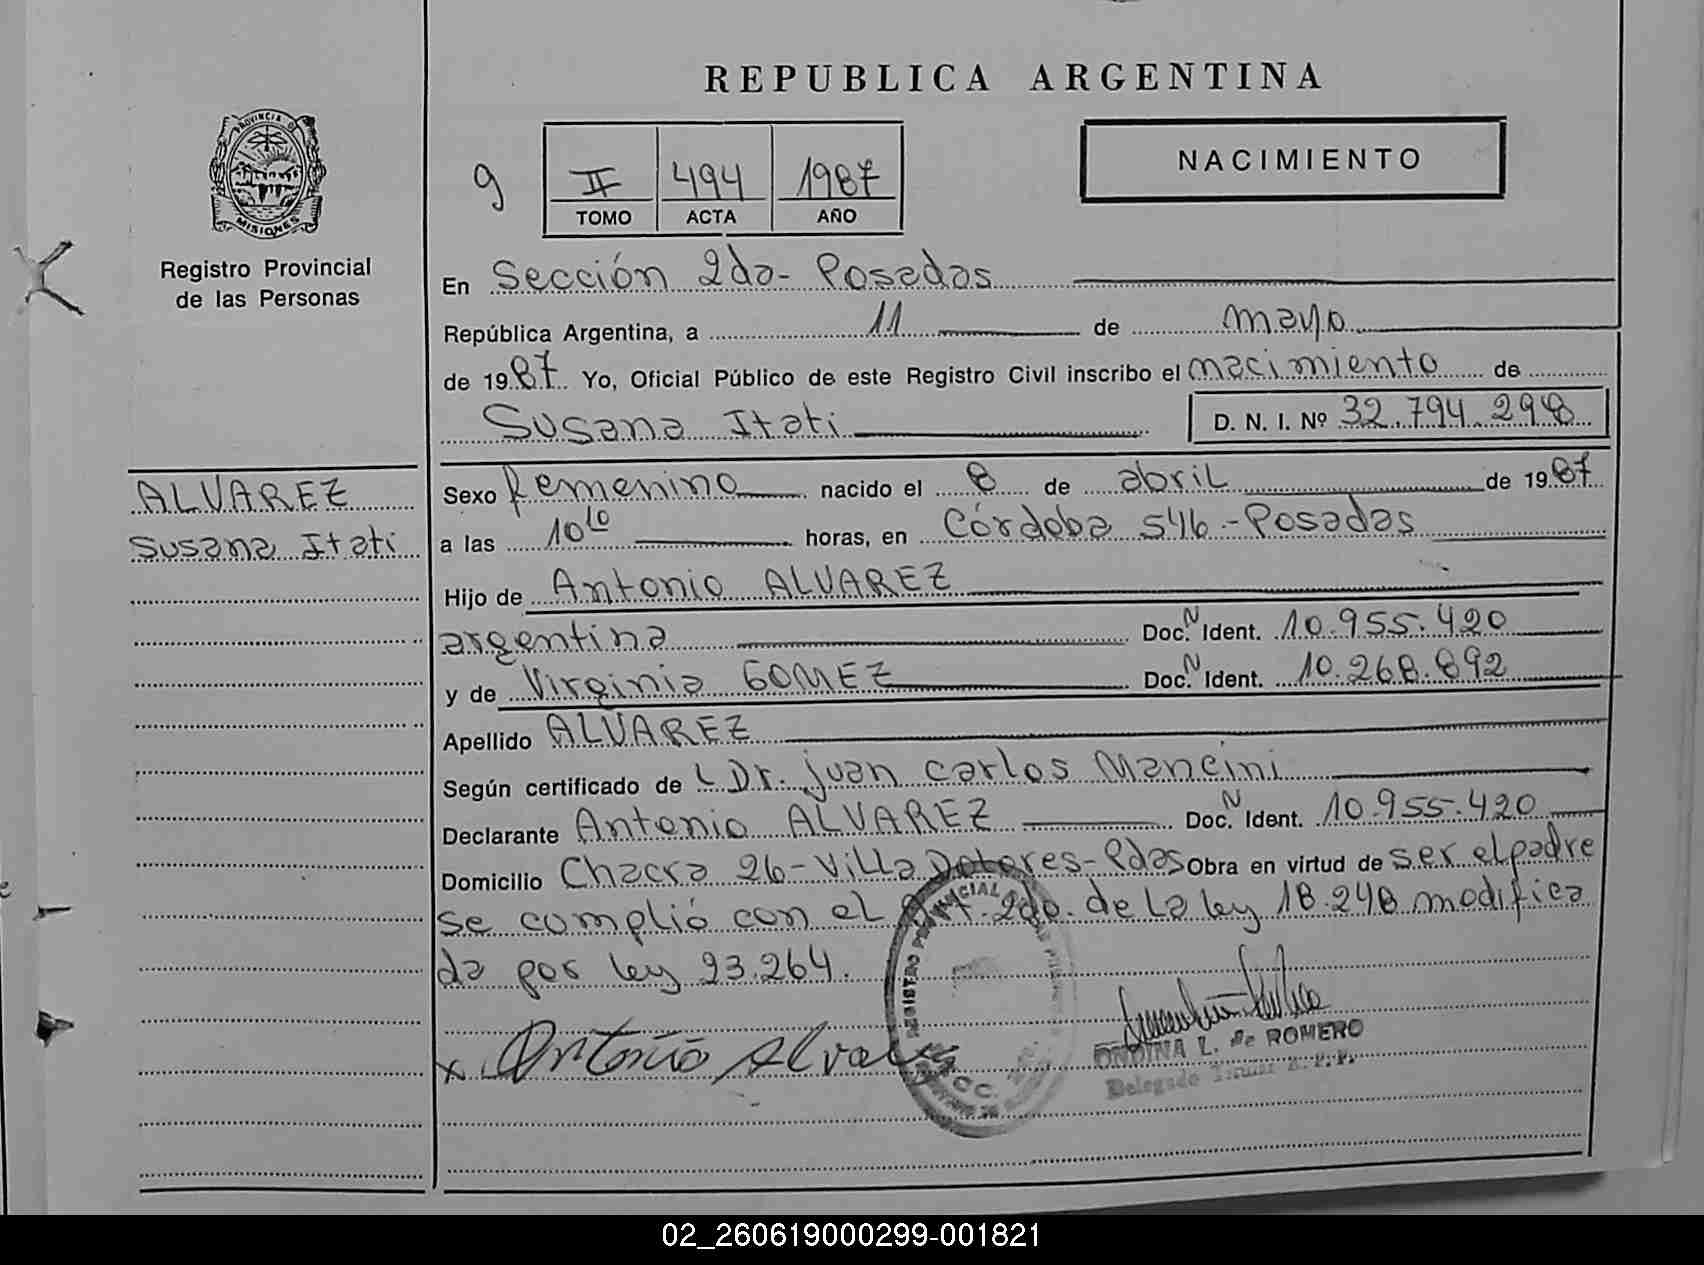 REPUBLICA ARGENTINA
PROVINCIA D
MISIONES
Registro Provincial
de las Personas
9 II 494 1987
TOMO ACTA AÑO
NACIMIENTO
En Sección 2da- Posadas
República Argentina, a 11 de mayo
de 1987 Yo, Oficial Público de este Registro Civil inscribo el nacimiento de
Susana Itati D. N. I. Nº 32.794.298
ALVAREZ
Susana Itati
Sexo femenino nacido el 8 de abril de 1987
a las 10 10 horas, en Córdoba 546-Posadas
Hijo de Antonio ALVAREZ
argentina Doc. N Ident. 10.955.420
y de Virginia GOMEZ Doc. N Ident. 10.268.892
Apellido ALVAREZ
Según certificado de L Dr. juan carlos Mancini
Declarante Antonio ALVAREZ Doc. N Ident. 10.955.420
Domicilio Chacra 26-Villa Dolores-Pdas Obra en virtud de ser el padre
se cumplió con el art. 2do. de la ley 18.248 modifica
da por ley 23.264.
x Antonio Alvarez
REGISTRO PROVINCIAL
ONDINA L. de ROMERO
Delegado Titular R.P.P.
02_260619000299-001821